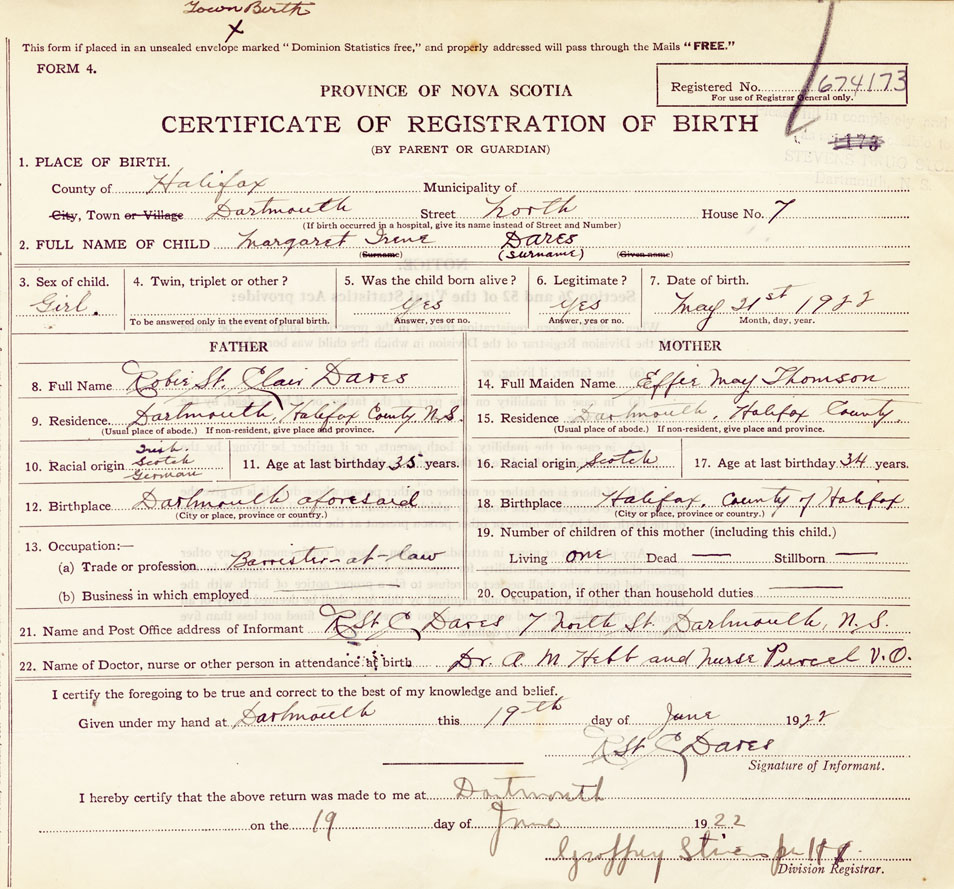 Town Birth
X
This form if placed in an unsealed envelope marked "Dominion Statistics free," and properly addressed will pass through the Mails "FREE."
FORM 4.
Registered No. 674173
For use of Registrar General only.
PROVINCE OF NOVA SCOTIA
CERTIFICATE OF REGISTRATION OF BIRTH
(BY PARENT OR GUARDIAN)
1. PLACE OF BIRTH.
County of Halifax Municipality of
City, Town or Village Dartmouth Street North House No. 7
(If birth occurred in a hospital, give its name instead of Street and Number)
2. FULL NAME OF CHILD Margaret Irene Dares
(Surname) (Surname) (Given name)
3. Sex of child. 4. Twin, triplet or other? 5. Was the child born alive? 6. Legitimate? 7. Date of birth.
Girl. Yes Yes May 21st 1922
To be answered only in the event of plural birth. Answer, yes or no. Answer, yes or no. Month, day, year.
FATHER
8. Full Name Robie St. Clair Dares
9. Residence Dartmouth, Halifax County N.S.
(Usual place of abode.) If non-resident, give place and province.
10. Racial origin Irish Scotch German 11. Age at last birthday 35 years.
12. Birthplace Dartmouth aforesaid
(City or place, province or country.)
13. Occupation:—
(a) Trade or profession Barrister-at-law
(b) Business in which employed
MOTHER
14. Full Maiden Name Effie May Thomson
15. Residence Dartmouth, Halifax County
(Usual place of abode.) If non-resident, give place and province.
16. Racial origin Scotch 17. Age at last birthday 34 years.
18. Birthplace Halifax, County of Halifax
(City or place, province or country.)
19. Number of children of this mother (including this child.)
Living one Dead — Stillborn —
20. Occupation, if other than household duties —
21. Name and Post Office address of Informant R St C Dares 7 North St. Dartmouth, N.S.
22. Name of Doctor, nurse or other person in attendance at birth Dr. A M Hebb and Nurse Purcel V.O.
I certify the foregoing to be true and correct to the best of my knowledge and belief.
Given under my hand at Dartmouth this 19th day of June 1922
R St C Dares
Signature of Informant.
I hereby certify that the above return was made to me at Dartmouth
on the 19 day of June 1922
Division Registrar.